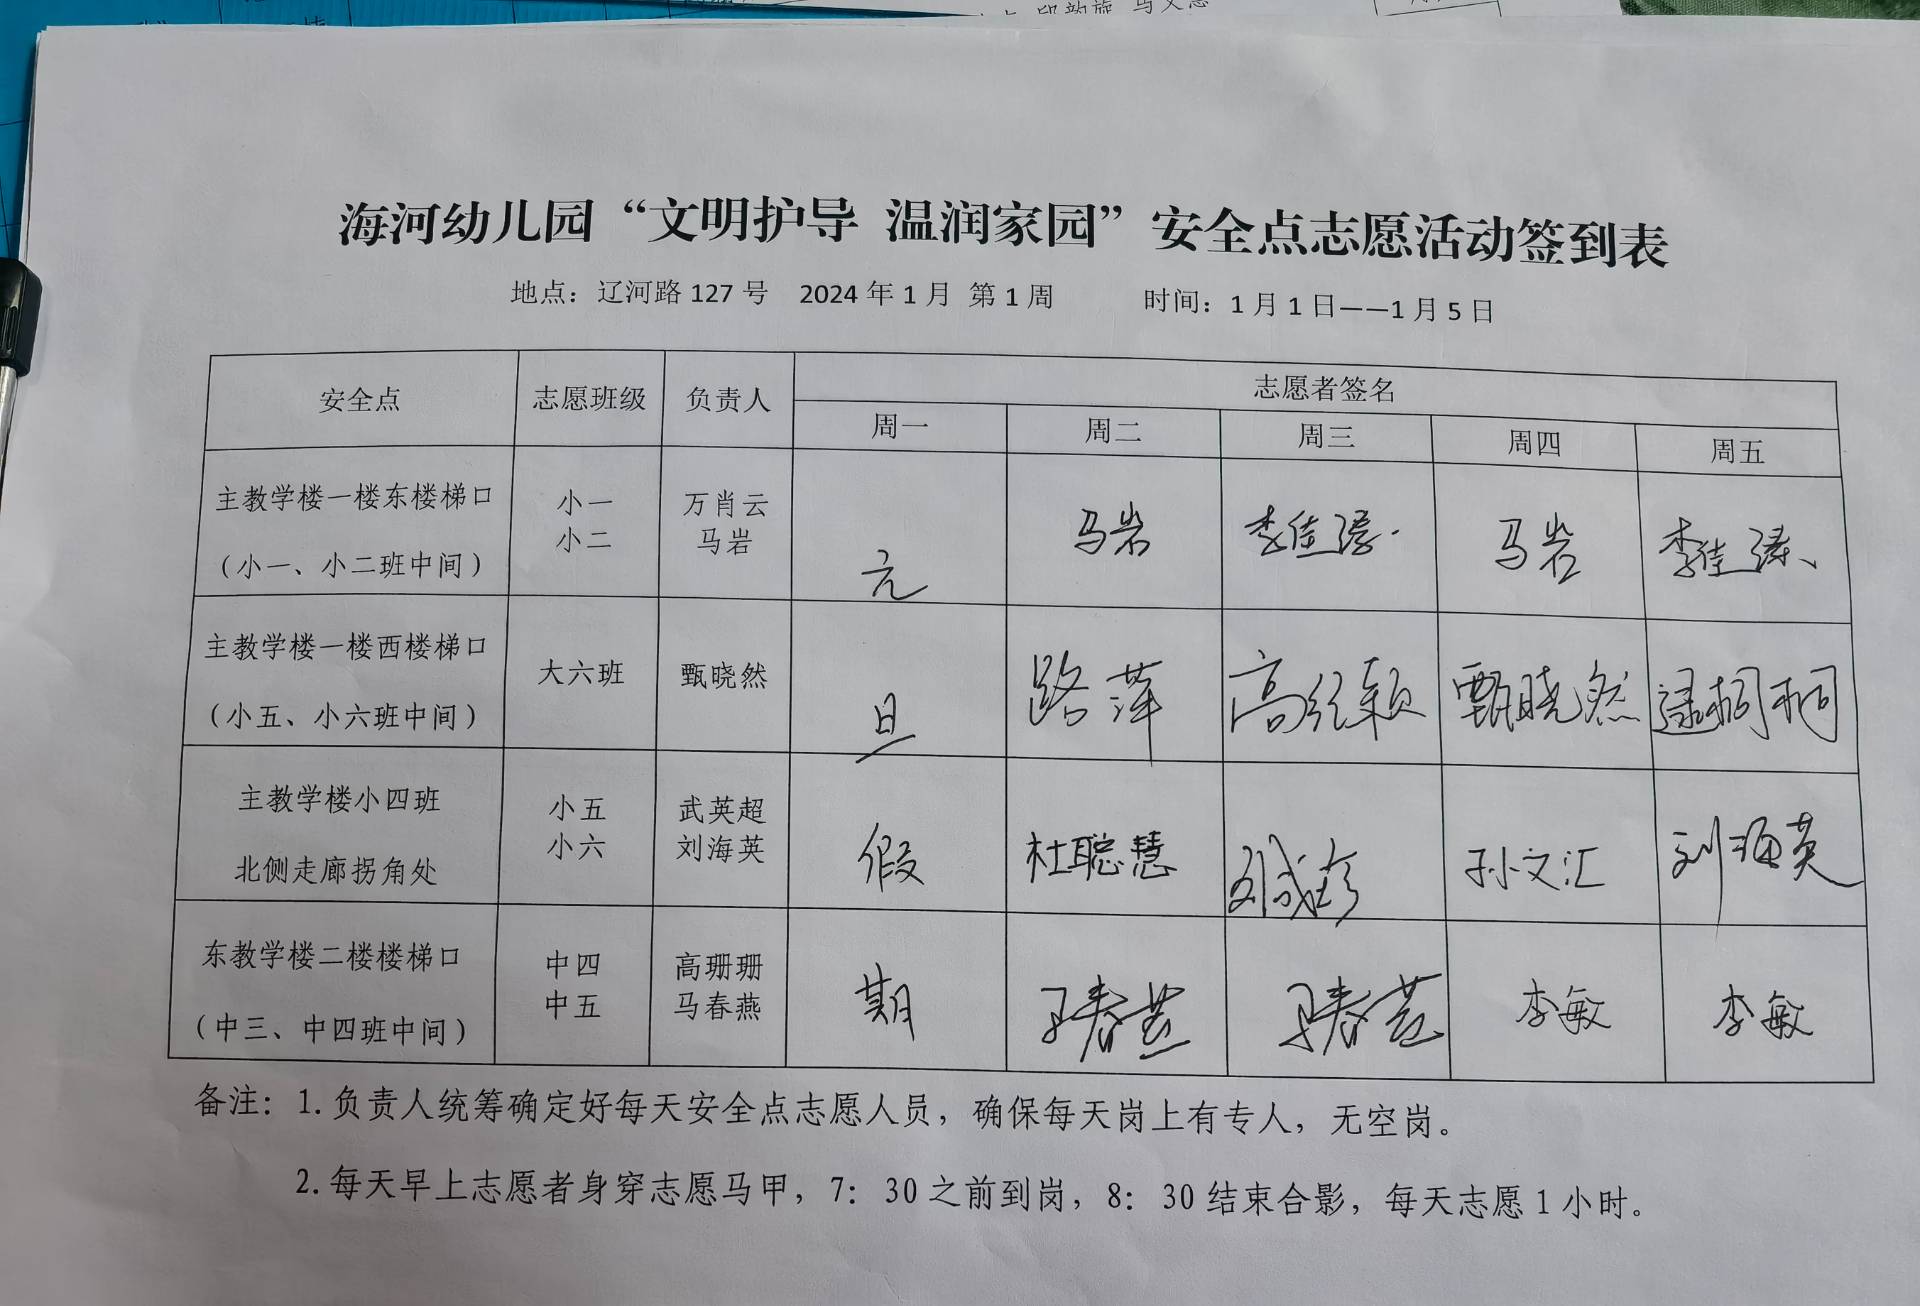 海河幼儿园“文明护导 温润家园”安全点志愿活动签到表
地点：辽河路127号 2024年1月 第1周 时间：1月1日——1月5日
安全点 志愿班级 负责人 志愿者签名
周一 周二 周三 周四 周五
主教学楼一楼东楼梯口
（小一、小二班中间）
小一
小二
万肖云
马岩
元
马岩
李佳
马岩
李佳
主教学楼一楼西楼梯口
（小五、小六班中间）
大六班
甄晓然
旦
路萍
高红颖
甄晓然
逯桐桐
主教学楼小四班
北侧走廊拐角处
小五
小六
武英超
刘海英
假
杜聪慧
孙文汇
刘海英
东教学楼二楼楼梯口
（中三、中四班中间）
中四
中五
高珊珊
马春燕
期
马春燕
马春燕
李敏
李敏
备注：1.负责人统筹确定好每天安全点志愿人员，确保每天岗上有专人，无空岗。
2.每天早上志愿者身穿志愿马甲，7：30之前到岗，8：30结束合影，每天志愿1小时。